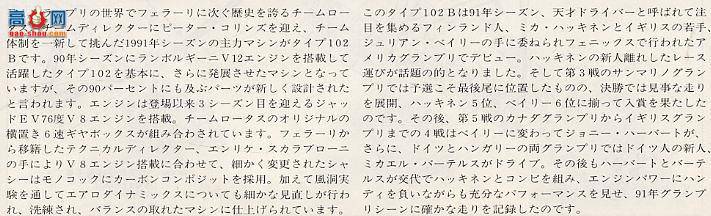 プリの世界でフェラーリに次ぐ歴史を誇るチームロー
ームディレクターにピーター・コリンズを迎え、チーム
体制を一新して挑んだ1991年シーズンの主力マシンがタイプ102
Bです。90年シーズンにランボルギーニV12エンジンを搭載して
活躍したタイプ102を基本に、さらに発展させたマシンとなって
いますが、その90パーセントにも及ぶパーツが新しく設計された
と言われます。エンジンは登場以来3シーズン目を迎えるジャッ
ドEV76度V8エンジンを搭載。チームロータスのオリジナルの
横置き6速ギヤボックスが組み合わされています。フェラーリか
ら移籍したテクニカルディレクター、エンリケ・スカラブローニ
の手によりV8エンジン搭載に合わせて、細かく変更されたシャ
シーはモノコックにカーボンコンポジットを採用。加えて風洞実
験を通してエアロダイナミックスについても細かな見直しが行わ
れ、洗練され、バランスの取れたマシンに仕上げられています。
このタイプ102Bは91年シーズン、天才ドライバーと呼ばれて注
目を集めるフィンランド人、ミカ・ハッキネンとイギリスの若手、
ジュリアン・ベイリーの手に委ねられフェニックスで行われたア
メリカグランプリでデビュー。ハッキネンの新人離れしたレース
運びが話題の的となりました。そして第3戦のサンマリノグラン
プリでは予選こそ最後尾に位置したものの、決勝では見事な走り
を展開、ハッキネン5位、ベイリー6位に揃って入賞を果たした
のです。その後、第5戦のカナダグランプリからイギリスグラン
プリまでの4戦はベイリーに変わってジョニー・ハーバートが、
さらに、ドイツとハンガリーの両グランプリではドイツ人の新人、
ミカエル・バーテルスがドライブ。その後もハーバートとバーテ
ルスが交代でハッキネンとコンビを組み、エンジンパワーにハン
ディを負いながらも充分なパフォーマンスを見せ、91年グランプ
リシーンに確かな走りを記録したのです。